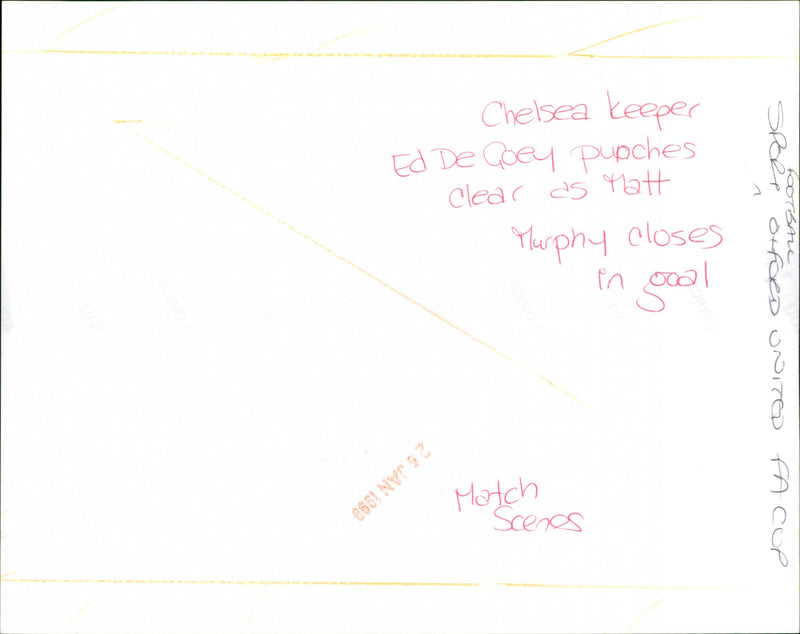 Chelsea keeper
Ed De Goey punches
clear as Matt
Murphy closes
in goal
26 JAN 1999
Match
Scenes
SPORT FOOTBALL OXFORD UNITED FA CUP